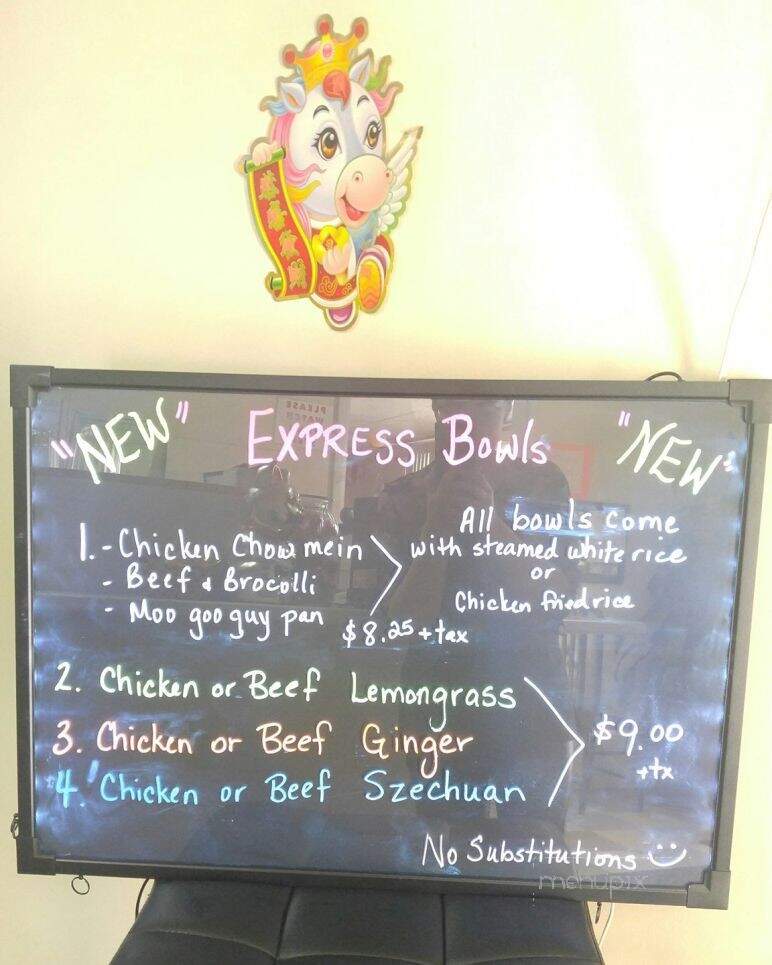 恭喜發財
"NEW" EXPRESS Bowls "NEW"
1. - Chicken Chow mein
- Beef & Brocolli
- Moo goo guy pan
$8.25 + tax
All bowls come
with steamed white rice
or
Chicken fried rice
2. Chicken or Beef Lemongrass
3. Chicken or Beef Ginger
4. Chicken or Beef Szechuan
$9.00
+tx
No Substitutions
menupix